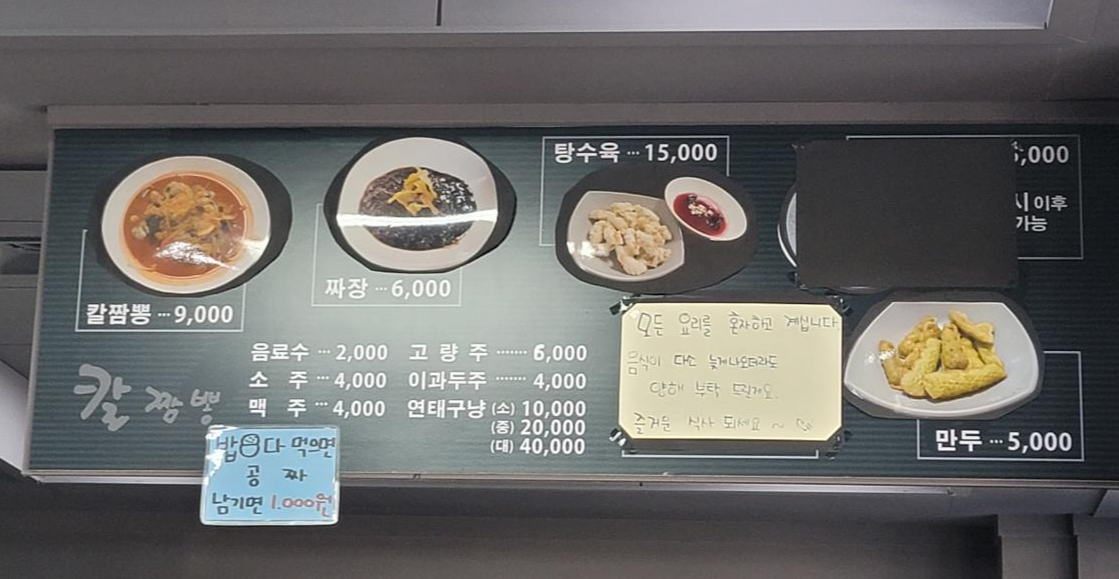 탕수육 ··· 15,000
,000
시 이후
가능
칼짬뽕 ··· 9,000
짜장 ··· 6,000
음료수 ··· 2,000
소 주 ··· 4,000
맥 주 ··· 4,000
고 량 주 ······ 6,000
이과두주 ······ 4,000
연태구냥 (소) 10,000
(중) 20,000
(대) 40,000
칼짬뽕
모든 요리를 혼자하고 계십니다
음식이 다소 늦게나오더라도
양해 부탁 드릴게요.
즐거운 식사 되세요 ~ ♡
만두 ··· 5,000
밥 다 먹으면
공 짜
남기면 1.000원